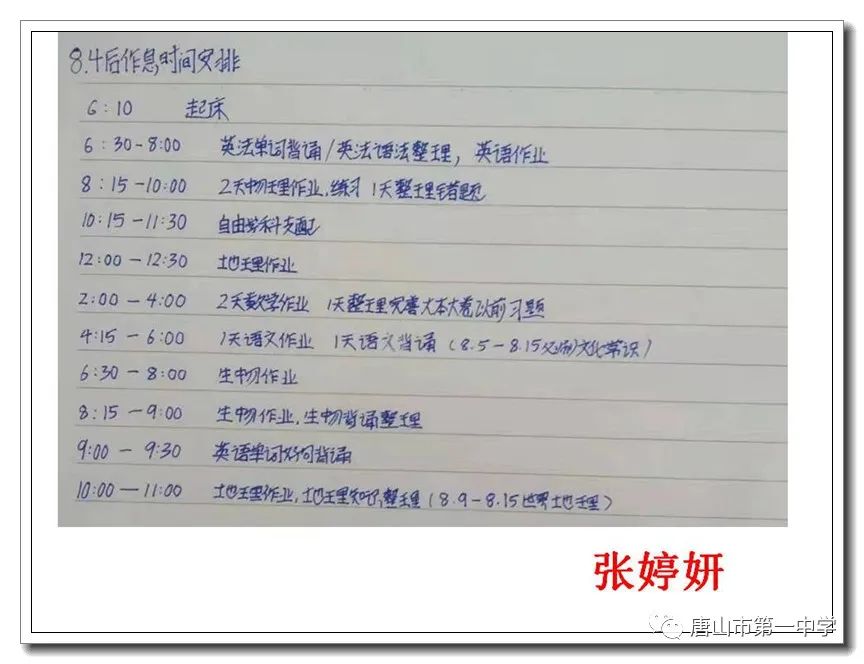 8.4后作息时间安排
6:10 起床
6:30-8:00 英法单词背诵/英法语法整理，英语作业
8:15-10:00 2天物理作业，练习 1天整理错题
10:15-11:30 自由学科支配
12:00-12:30 地理作业
2:00-4:00 2天数学作业 1天整理完善大本大卷以前习题
4:15-6:00 1天语文作业 1天语文背诵（8.5-8.15 文化常识）
6:30-8:00 生物作业
8:15-9:00 生物作业，生物背诵整理
9:00-9:30 英语单词好句背诵
10:00-11:00 地理作业，地理知识整理（8.9-8.15世界地理）
张婷妍
唐山市第一中学